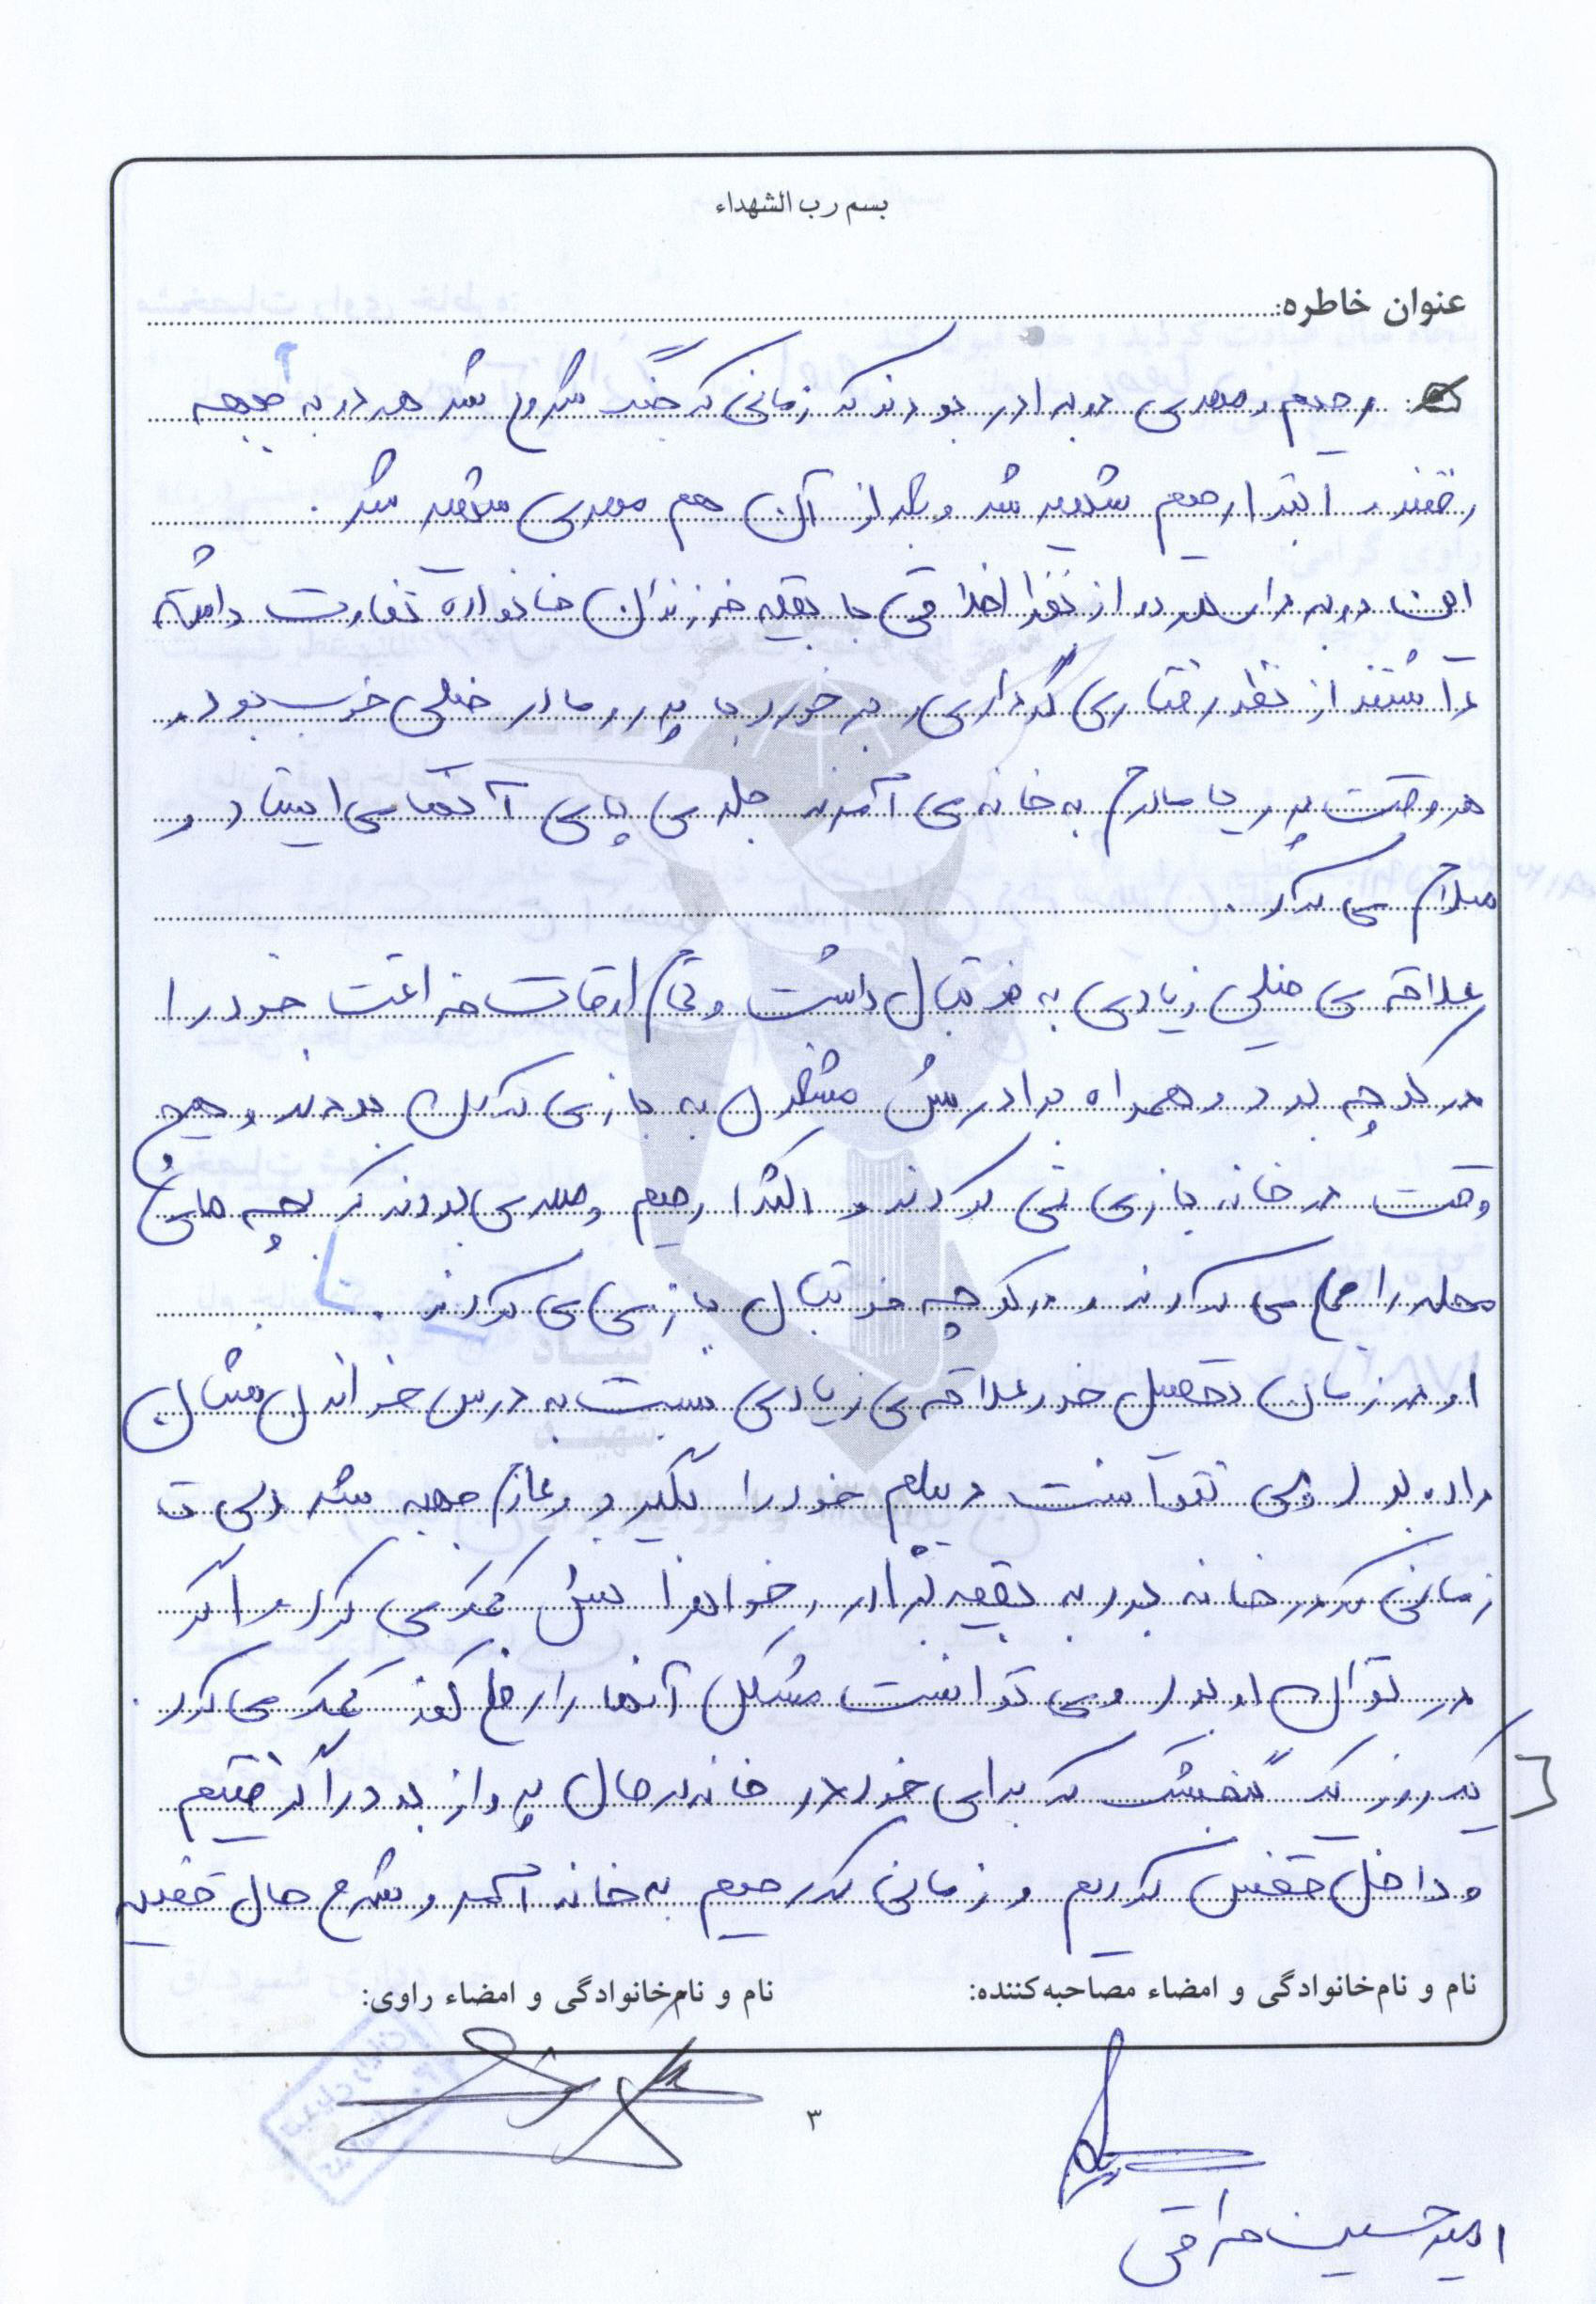 بسم رب الشهداء
عنوان خاطره:
رحیم و مهدی دو برادر بودند که زمانی که جنگ شروع شد هر دو به جبهه
رفتند و ابتدا رحیم شهید شد و بعد از آن هم مهدی شهید شد.
این دو برادر هر دو از نظر اخلاقی با بقیه فرزندان خانواده تفاوت داشته
داشتند از نظر رفتاری کرداری و برخورد با پدر و مادر خیلی خوب بود و
هر وقت پدر یا مادرم به خانه می آمدند جلوی پای آنها می ایستاد و
سلام می کرد.
علاقه ی خیلی زیادی به فوتبال داشت و تمام اوقات فراغت خود را
در کوچه بود و همراه برادرش مشغول به بازی کردن بودند و هیچ
وقت در خانه بازی نمی کردند و اکثرا رحیم و مهدی بودند که بچه های
محله را جمع می کردند و در کوچه فوتبال بازی می کردند.
او در زمان تحصیل خود علاقه ی زیادی نسبت به درس خواندن نشان
داده بود ولی نتوانست دیپلم خود را بگیرد و عازم جبهه شد ولی ت
زمانی که در خانه بود به بقیه برادر و خواهرانش کمک می کرد و اگر
در توان او بود و می توانست مشکل آنها را رفع کند کمک می کرد.
یک روز یک گنجشک که برای خود در خانه در حال پرواز بود را گرفتیم
و داخل قفس کردیم و زمانی که رحیم به خانه آمد و شرح حال قضیه
نام و نام‌خانوادگی و امضاء مصاحبه‌کننده:
نام و نام‌خانوادگی و امضاء راوی:
۳
امیرحسین عراقی